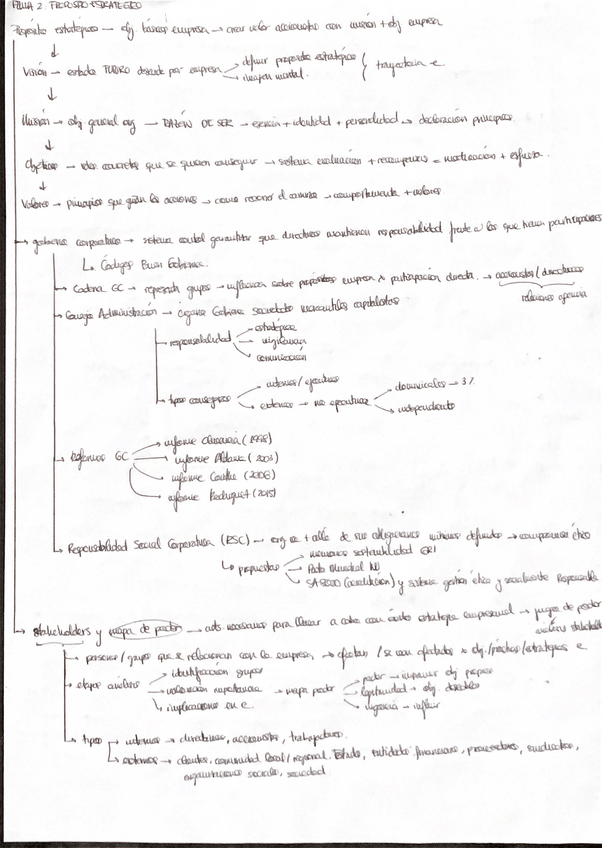 TEMA 2. PROPÓSITO ESTRATÉGICO
Propósito estratégico → obj. básico empresa → crear valor accionistas con misión + obj empresa
Visión → estado FUTURO deseado por empresa definir propósito estratégico trayectoria e.
imagen mental.
Misión → obj general org → RAZÓN DE SER → esencia + identidad + personalidad → declaración principios.
Objetivos → idea concretas que se quieren conseguir → sistema evaluación + recompensas = motivación + esfuerzo.
Valores → principios que guían las acciones → como recorrer el camino → comportamiento + valores
→ gobierno corporativo → sistema control garantizar que directivos mantienen responsabilidad frente a los que tienen participaciones
↳ Códigos Buen Gobierno.
→ Cadena GC → representa grupos → influencia sobre propósitos empresa x participación directa. → accionistas / directivos
relaciones agencia
→ Consejo Administración → órgano Gobierno sociedades mercantiles capitalistas
→ responsabilidad estratégica
vigilancia
comunicación
→ tipos consejeros internos / ejecutivos
externos → no ejecutivos dominicales → 3%
independiente
→ Reformas GC informe Olivencia (1998)
informe Aldama (2003)
informe Conthe (2006)
informe Rodríguez (2015)
→ Responsabilidad Social Corporativa (RSC) → org va + allá de sus obligaciones mínimas definidas → compromiso ético
↳ propuestas memorias sostenibilidad GRI
Pacto Mundial NU
SA 8000 (acreditación) y sistema gestión ético y socialmente Responsable
→ stakeholders y mapa de poder → necesarios para llevar a cabo con éxito estrategia empresarial → juegos de poder
stakeholders
→ personas / grupos que se relacionan con la empresa, → afectan / se ven afectados x obj. / estrategias e
→ etapas análisis identificación grupos
valoración importancia → mapa poder poder → imponer obj propios
legitimidad → obj. deseables
urgencia → influir
implicaciones en e.
→ tipos internos → directivos, accionistas, trabajadores.
externos → clientes, comunidad local / regional, Estado, entidades financieras, proveedores, sindicatos,
organizaciones sociales, sociedad